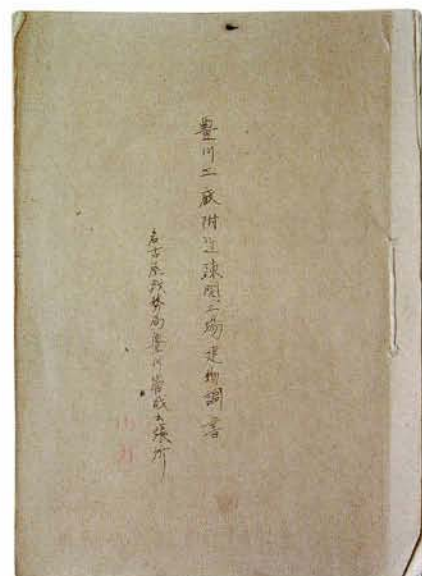 豊川工廠附近疎開工場建物調書
名古屋財務局豊川管財出張所